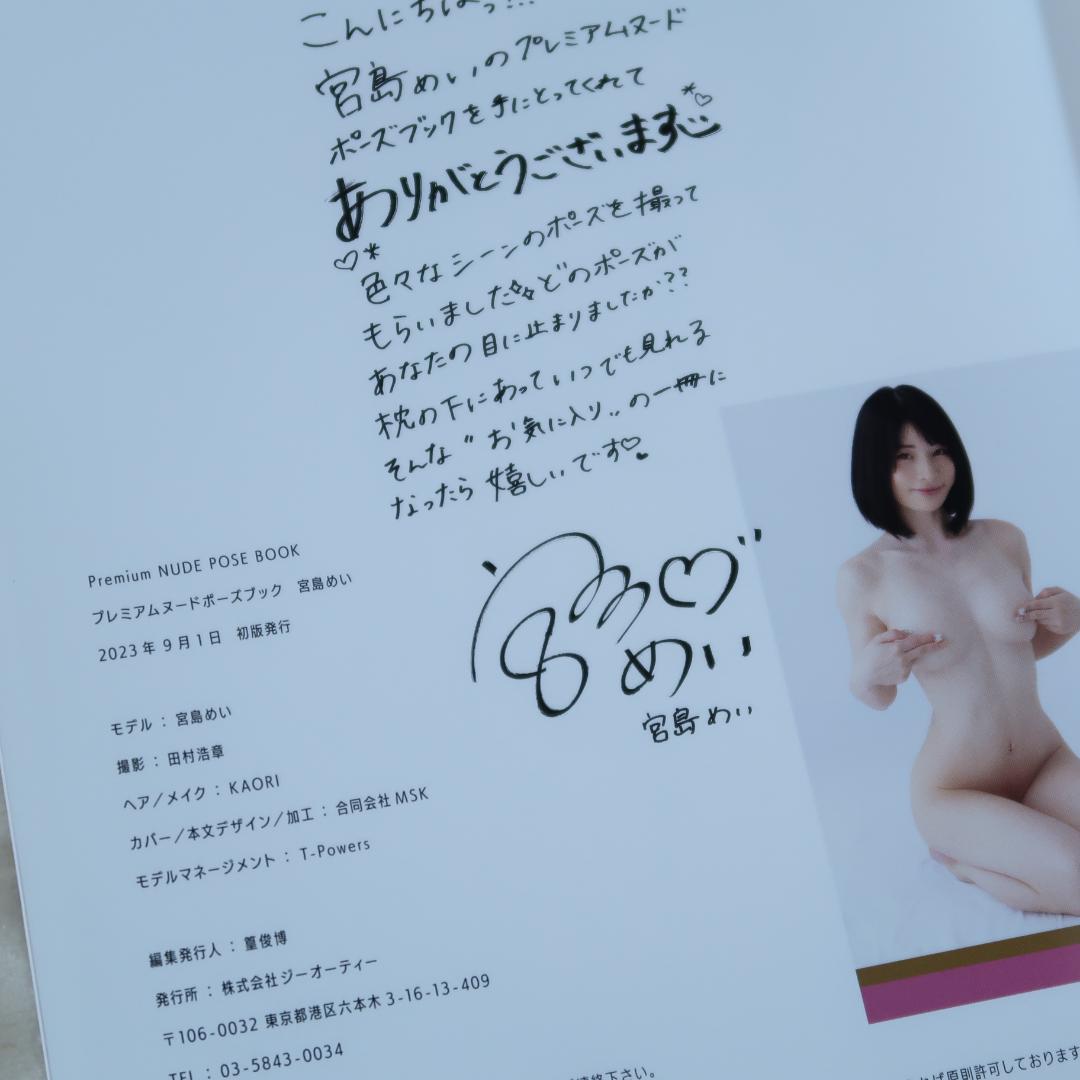 こんにちはっ!!!
宮島めいのプレミアムヌード
ポーズブックを手にとってくれて
ありがとうございます
色々なシーンのポーズを撮って
もらいました どのポーズが
あなたの目に止まりましたか??
枕の下にあっていつでも見れる
そんな"お気に入り"の一冊に
なったら嬉しいです
めい
宮島めい
Premium NUDE POSE BOOK
プレミアムヌードポーズブック 宮島めい
2023年9月1日 初版発行
モデル : 宮島めい
撮影 : 田村浩章
ヘア/メイク : KAORI
カバー/本文デザイン/加工 : 合同会社MSK
モデルマネージメント : T-Powers
編集発行人 : 篁俊博
発行所 : 株式会社ジーオーティー
〒106-0032 東京都港区六本木3-16-13-409
TEL : 03-5843-0034
絡下さい。
ば原則許可しております